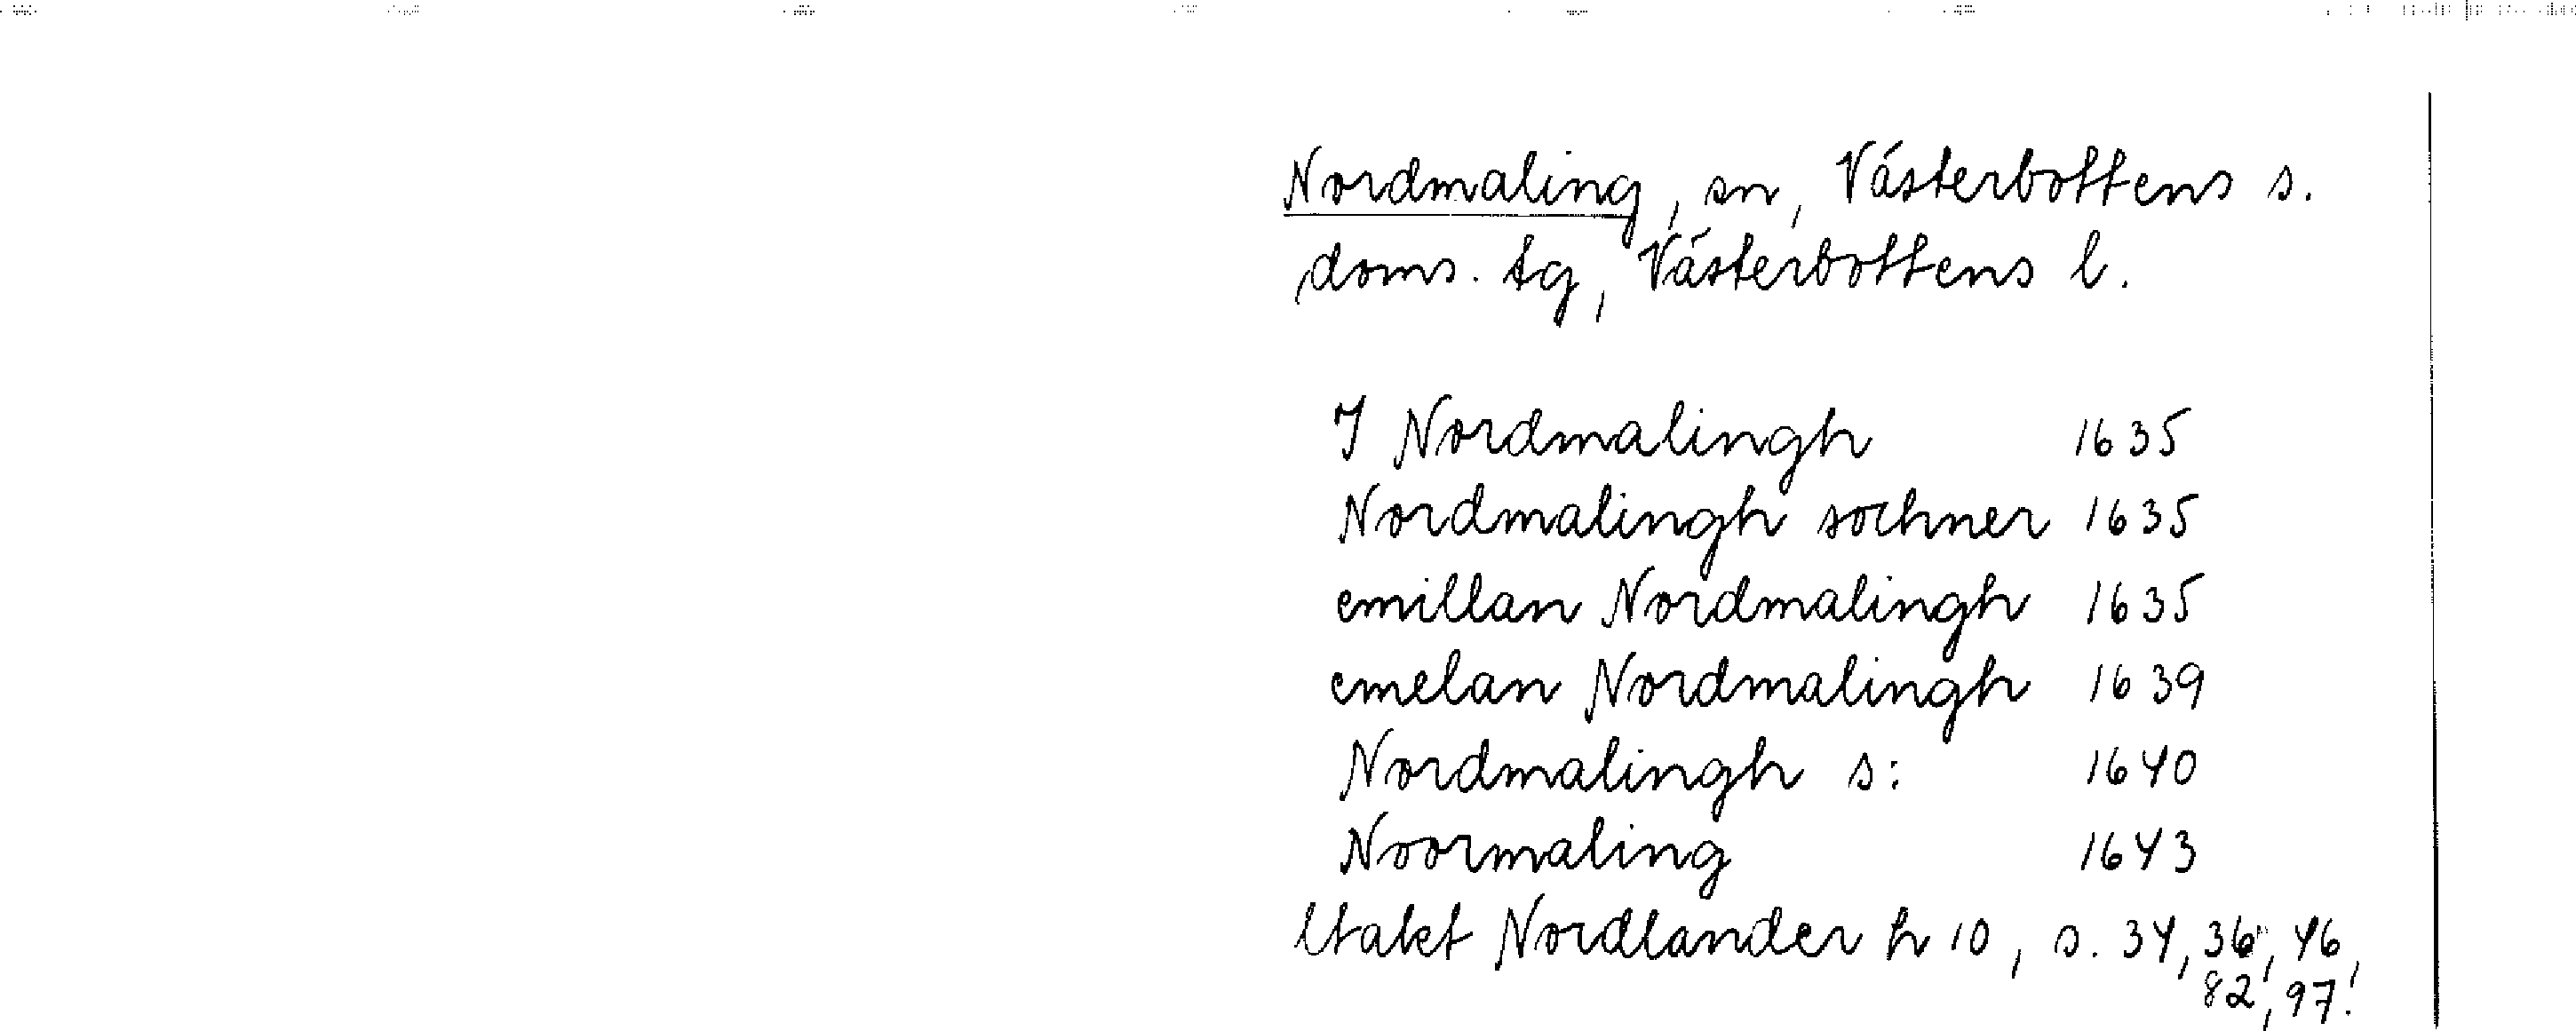 Nordmaling, sn, Västerbottens s.
doms. tg, Västerbottens l.
I Nordmalingh 1635
Nordmalingh sochner 1635
emillan Nordmalingh 1635
emelan Nordmalingh 1639
Nordmalingh s: 1640
Noormaling 1643
Nordlander h 10, s. 34, 36, 46,
82, 97.